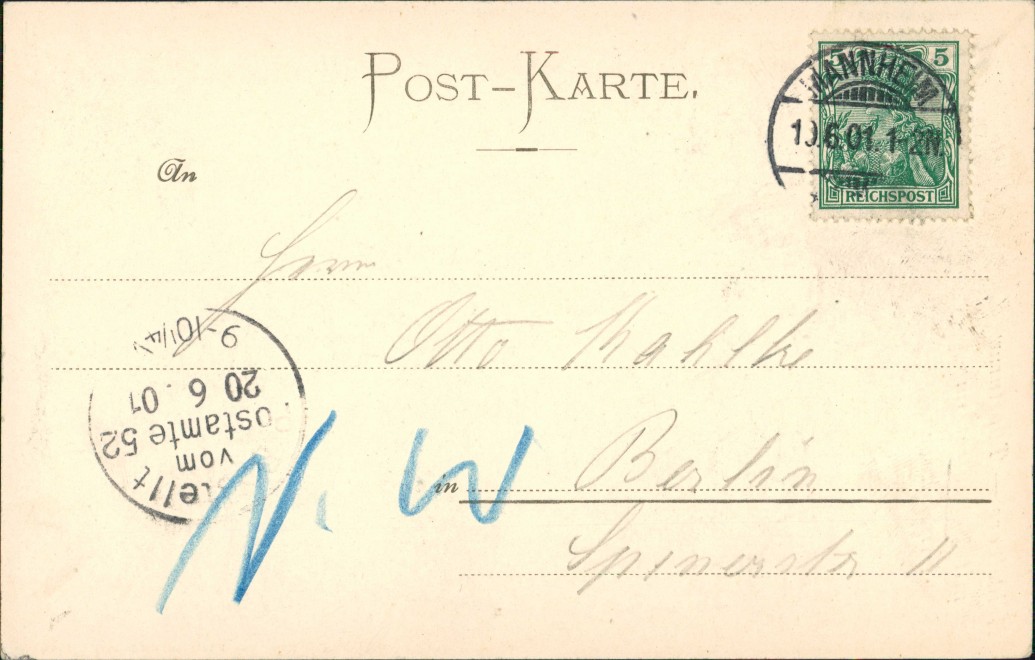 POST-KARTE.
5
MANNHEIM
19.6.01. 1-2N.
REICHSPOST
An
Herrn
Otto Mahlke
9-10¼V
20 6. 01
ostamte 52
vom
stellt
N. W
in Berlin
11